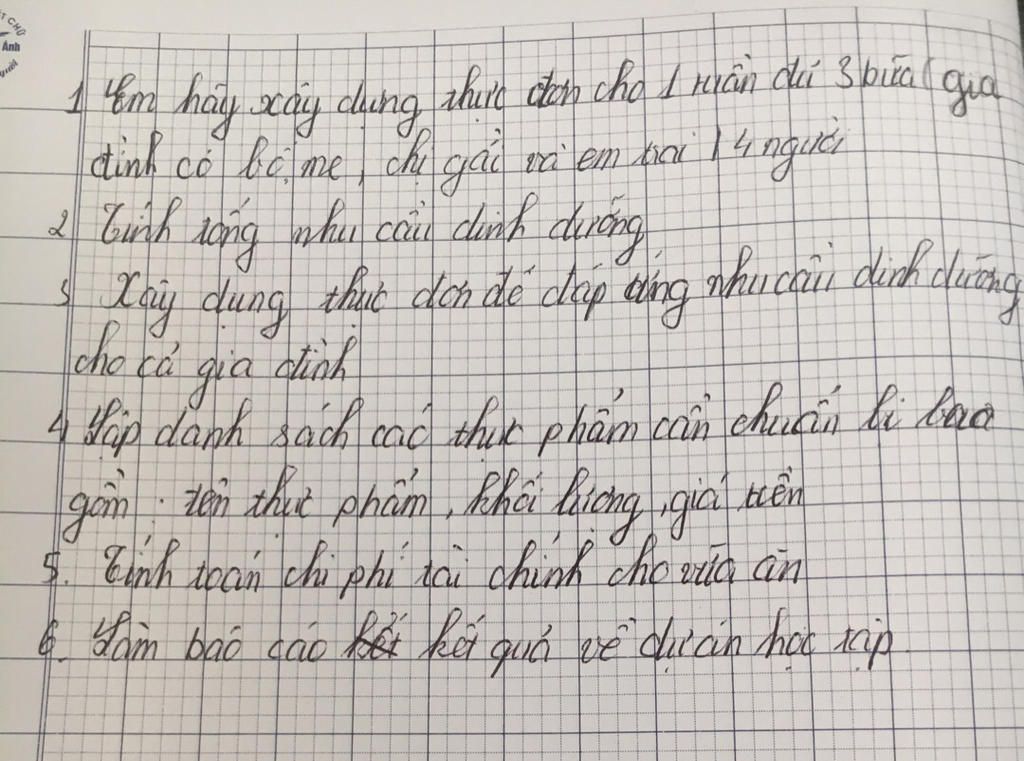 ẾT CHỮ
Ánh
1 Em hãy xây dựng thực đơn cho 1 tuần đủ 3 bữa ( gia
đình có bố, mẹ, chị gái và em trai ) 4 người
2 Tính tổng nhu cầu dinh dưỡng
3 Xây dựng thực đơn để đáp ứng nhu cầu dinh dưỡng
cho cả gia đình
4 Lập danh sách các thực phẩm cần chuẩn bị bao
gồm : tên thực phẩm, khối lượng, giá tiền
5. Tính toán chi phí tài chính cho bữa ăn
6. Làm báo cáo kết quả về dự án học tập.